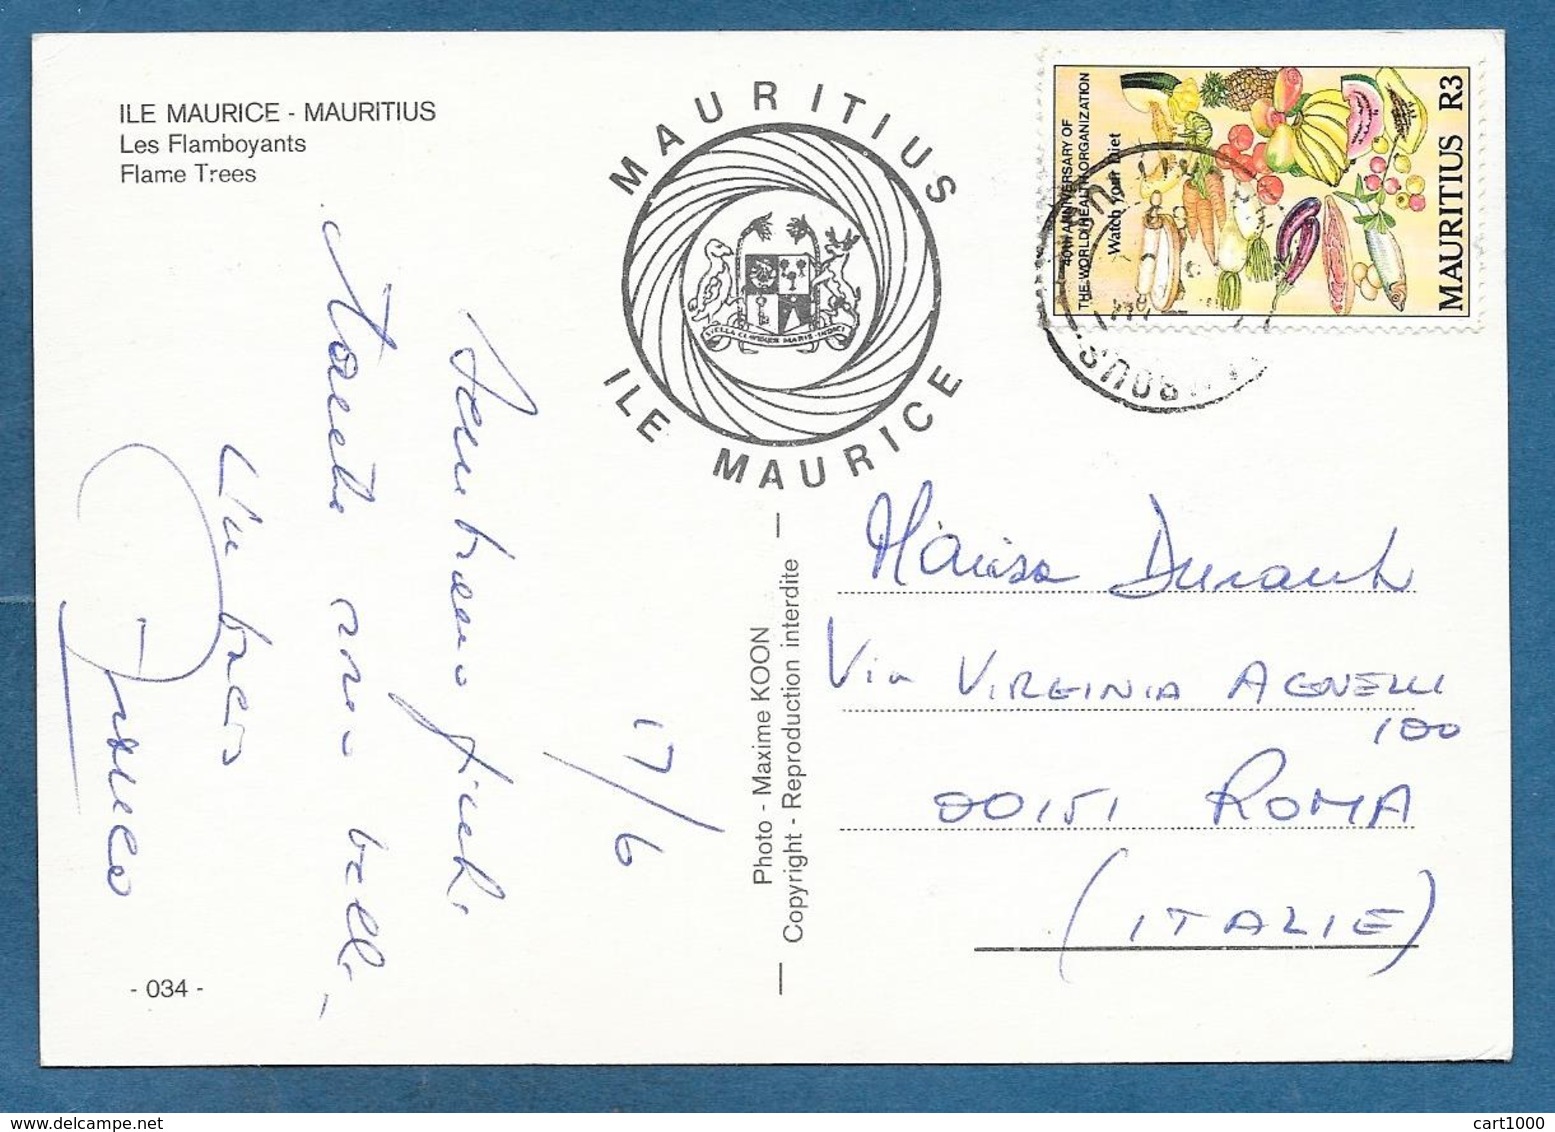 ILE MAURICE - MAURITIUS
Les Flamboyants
Flame Trees
MAURITIUS
STELLA CLAVISQUE MARIS INDICI
ILE MAURICE
40th ANNIVERSARY OF
THE WORLD HEALTH ORGANIZATION
Watch your Diet
MAURITIUS R3
17/6
Sembrano finti,
ma
Un bacio
Photo - Maxime KOON
Copyright - Reproduction interdite
Marisa Durante
Via VIRGINIA AGNELLI
100
00151 ROMA
(ITALIE)
- 034 -
cart1000